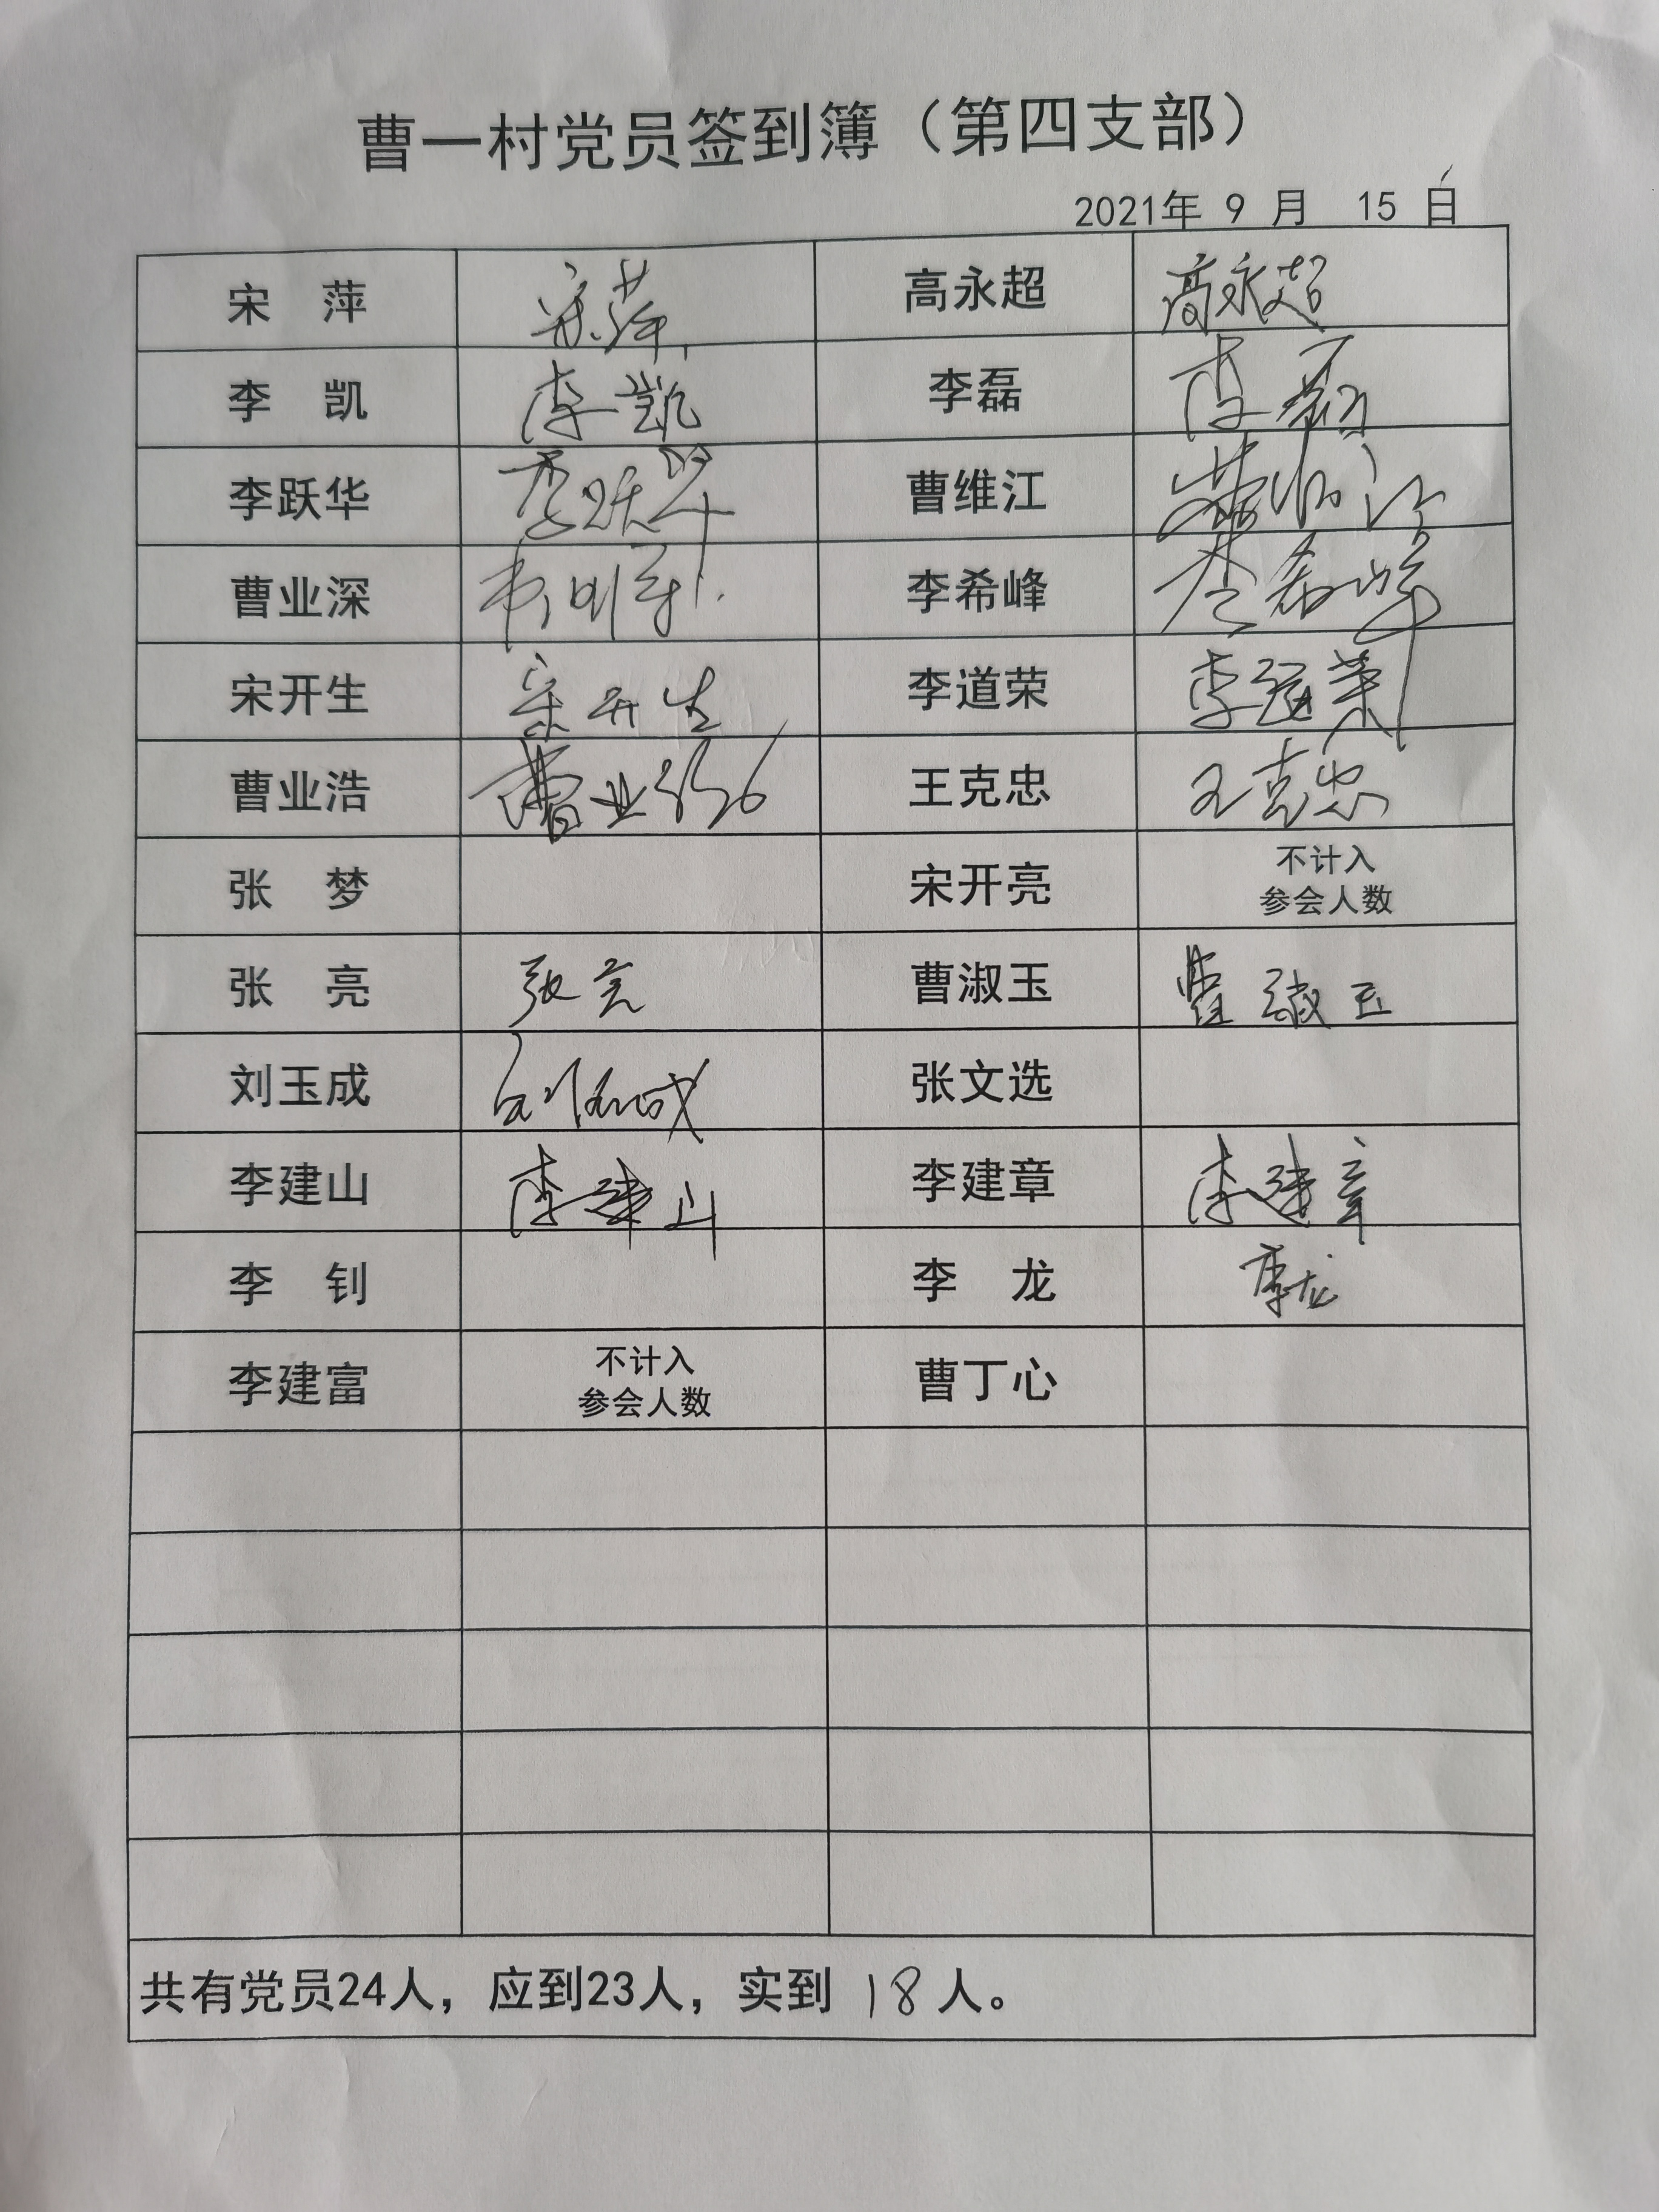 曹一村党员签到簿（第四支部）
2021年 9 月 15 日
宋 萍 宋萍 高永超 高永超
李 凯 李凯 李磊 李磊
李跃华 李跃华 曹维江 曹维江
曹业深 李希峰 李希峰
宋开生 宋开生 李道荣 李道荣
曹业浩 曹业浩 王克忠 王克忠
张 梦 宋开亮 不计入
参会人数
张 亮 张亮 曹淑玉 曹淑玉
刘玉成 刘玉成 张文选
李建山 李建山 李建章 李建章
李 钊 李 龙 李龙
李建富 不计入
参会人数 曹丁心
共有党员24人，应到23人，实到 18 人。